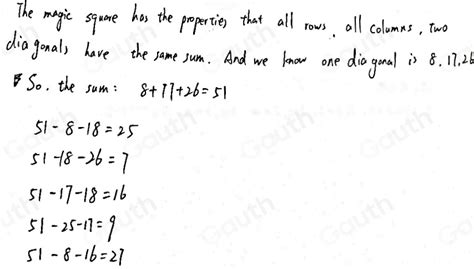 The magic square has the properties that all rows, all columns, two
diagonals have the same sum. And we know one diagonal is 8, 17, 26
So, the sum: 8+17+26=51
51-8-18=25
51-18-26=7
51-17-18=16
51-25-17=9
51-8-16=27